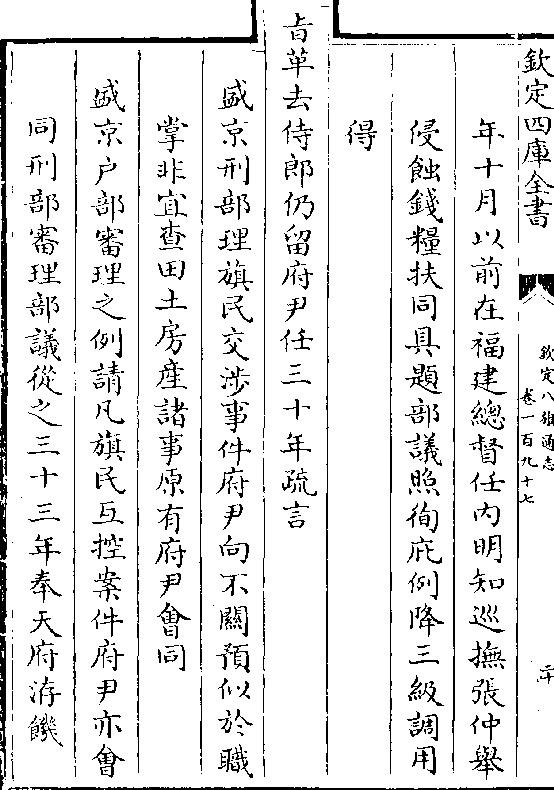 欽定四庫全書
欽定八旗通志
卷一百九十七
二十
年十月以前在福建總督任内明知巡撫張仲舉
侵蝕錢糧扶同具題部議照徇庇例降三級調用
得
㫖革去侍郎仍留府尹任三十年疏言
盛京刑部理旗民交涉事件府尹向不關預似於職
掌非宜查田土房産諸事原有府尹會同
盛京户部審理之例請凡旗民互控案件府尹亦會
同刑部審理部議從之三十三年奉天府洊饑